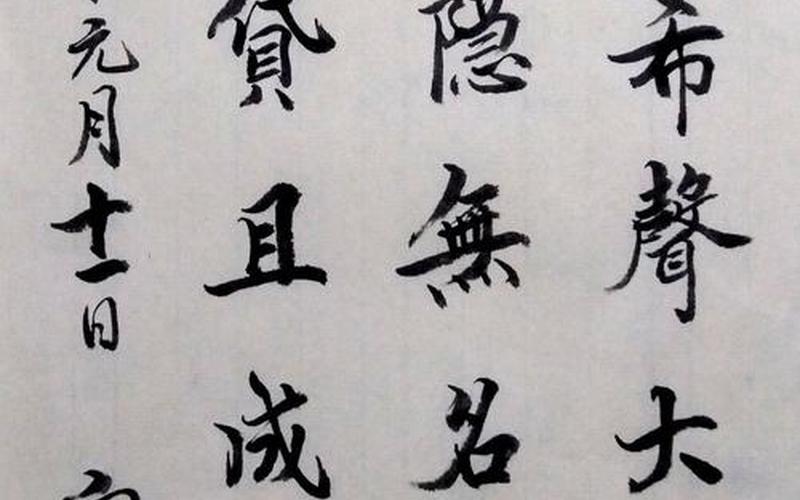 希聲大
隐無名
貸且成
元月十一日